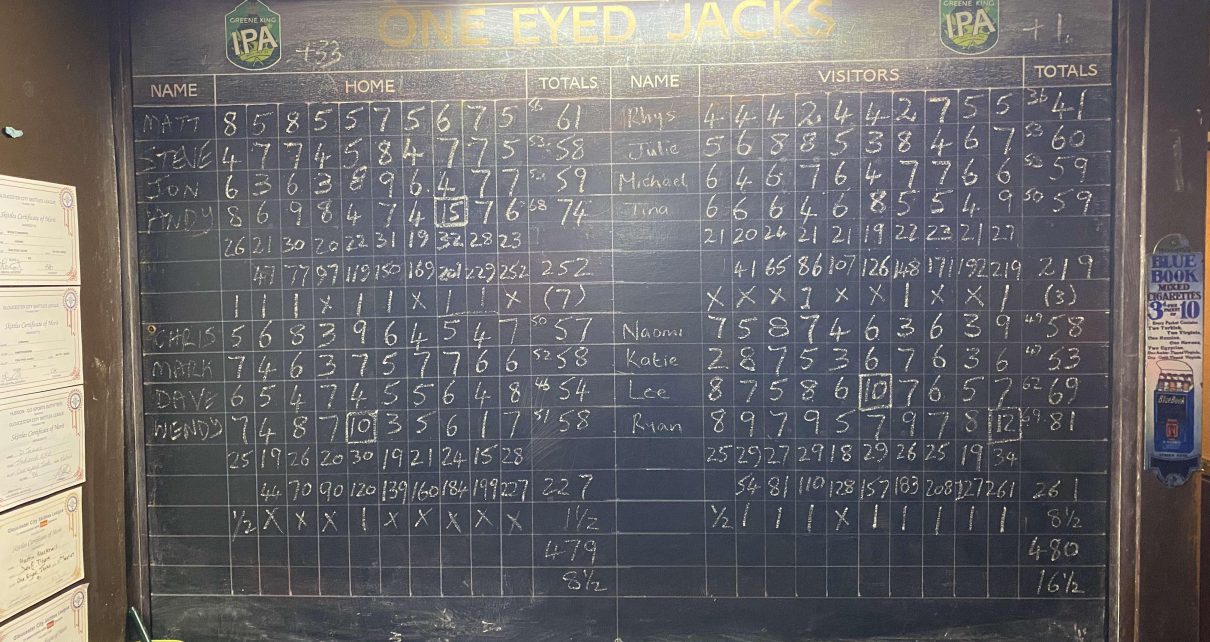 GREENE KING
IPA
+33
ONE EYED JACKS
GREENE KING
IPA
+1
NAME HOME TOTALS NAME VISITORS TOTALS
MATT 8 5 8 5 5 7 5 6 7 5 61 Rhys 4 4 4 2 4 4 2 7 5 5 36 41
STEVE 4 7 7 4 5 8 4 7 7 5 53 58 Julie 5 6 8 8 5 3 8 4 6 7 53 60
JON 6 3 6 3 8 9 6 4 7 7 52 59 Michael 6 4 6 7 6 4 7 7 6 6 53 59
ANDY 8 6 9 8 4 7 4 15 7 6 68 74 Tina 6 6 6 4 6 8 5 5 4 9 50 59
26 21 30 20 22 31 19 32 28 23 21 20 24 21 21 19 22 23 21 27
47 77 97 119 150 169 201 229 252 252 41 65 86 107 126 148 171 192 219 219
1 1 1 x 1 1 x 1 1 x (7) x x x 1 x x 1 x x 1 (3)
CHRIS 5 6 8 3 9 6 4 5 4 7 50 57 Naomi 7 5 8 7 4 6 3 6 3 9 49 58
MARK 7 4 6 3 7 5 7 7 6 6 52 58 Katie 2 8 7 5 3 6 7 6 3 6 47 53
DAVE 6 5 4 7 4 5 5 6 4 8 46 54 Lee 8 7 5 8 6 10 7 6 5 7 62 69
WENDY 7 4 8 7 10 3 5 6 1 7 51 58 Ryan 8 9 7 9 5 7 9 7 8 12 69 81
25 19 26 20 30 19 21 24 15 28 25 29 27 29 18 29 26 25 19 34
44 70 90 120 139 160 184 199 227 227 54 81 110 128 157 183 208 227 261 261
½ x x x 1 x x x x x 1½ ½ 1 1 1 x 1 1 1 1 1 8½
479 480
8½ 16½
BLUE
BOOK
MIXED
CIGARETTES
3D PER PACKET OF 10
Every Packet Contains
Two Turkish,
Two Virginia,
Two Egyptian,
Blue Book
Skittles Certificate of Merit
Skittles Certificate of Merit
GLOUCESTER CITY SKITTLES LEAGUE
Skittles Certificate of Merit
Gloucester City Skittles League
Certificate of Merit
Gloucester City Skittles League